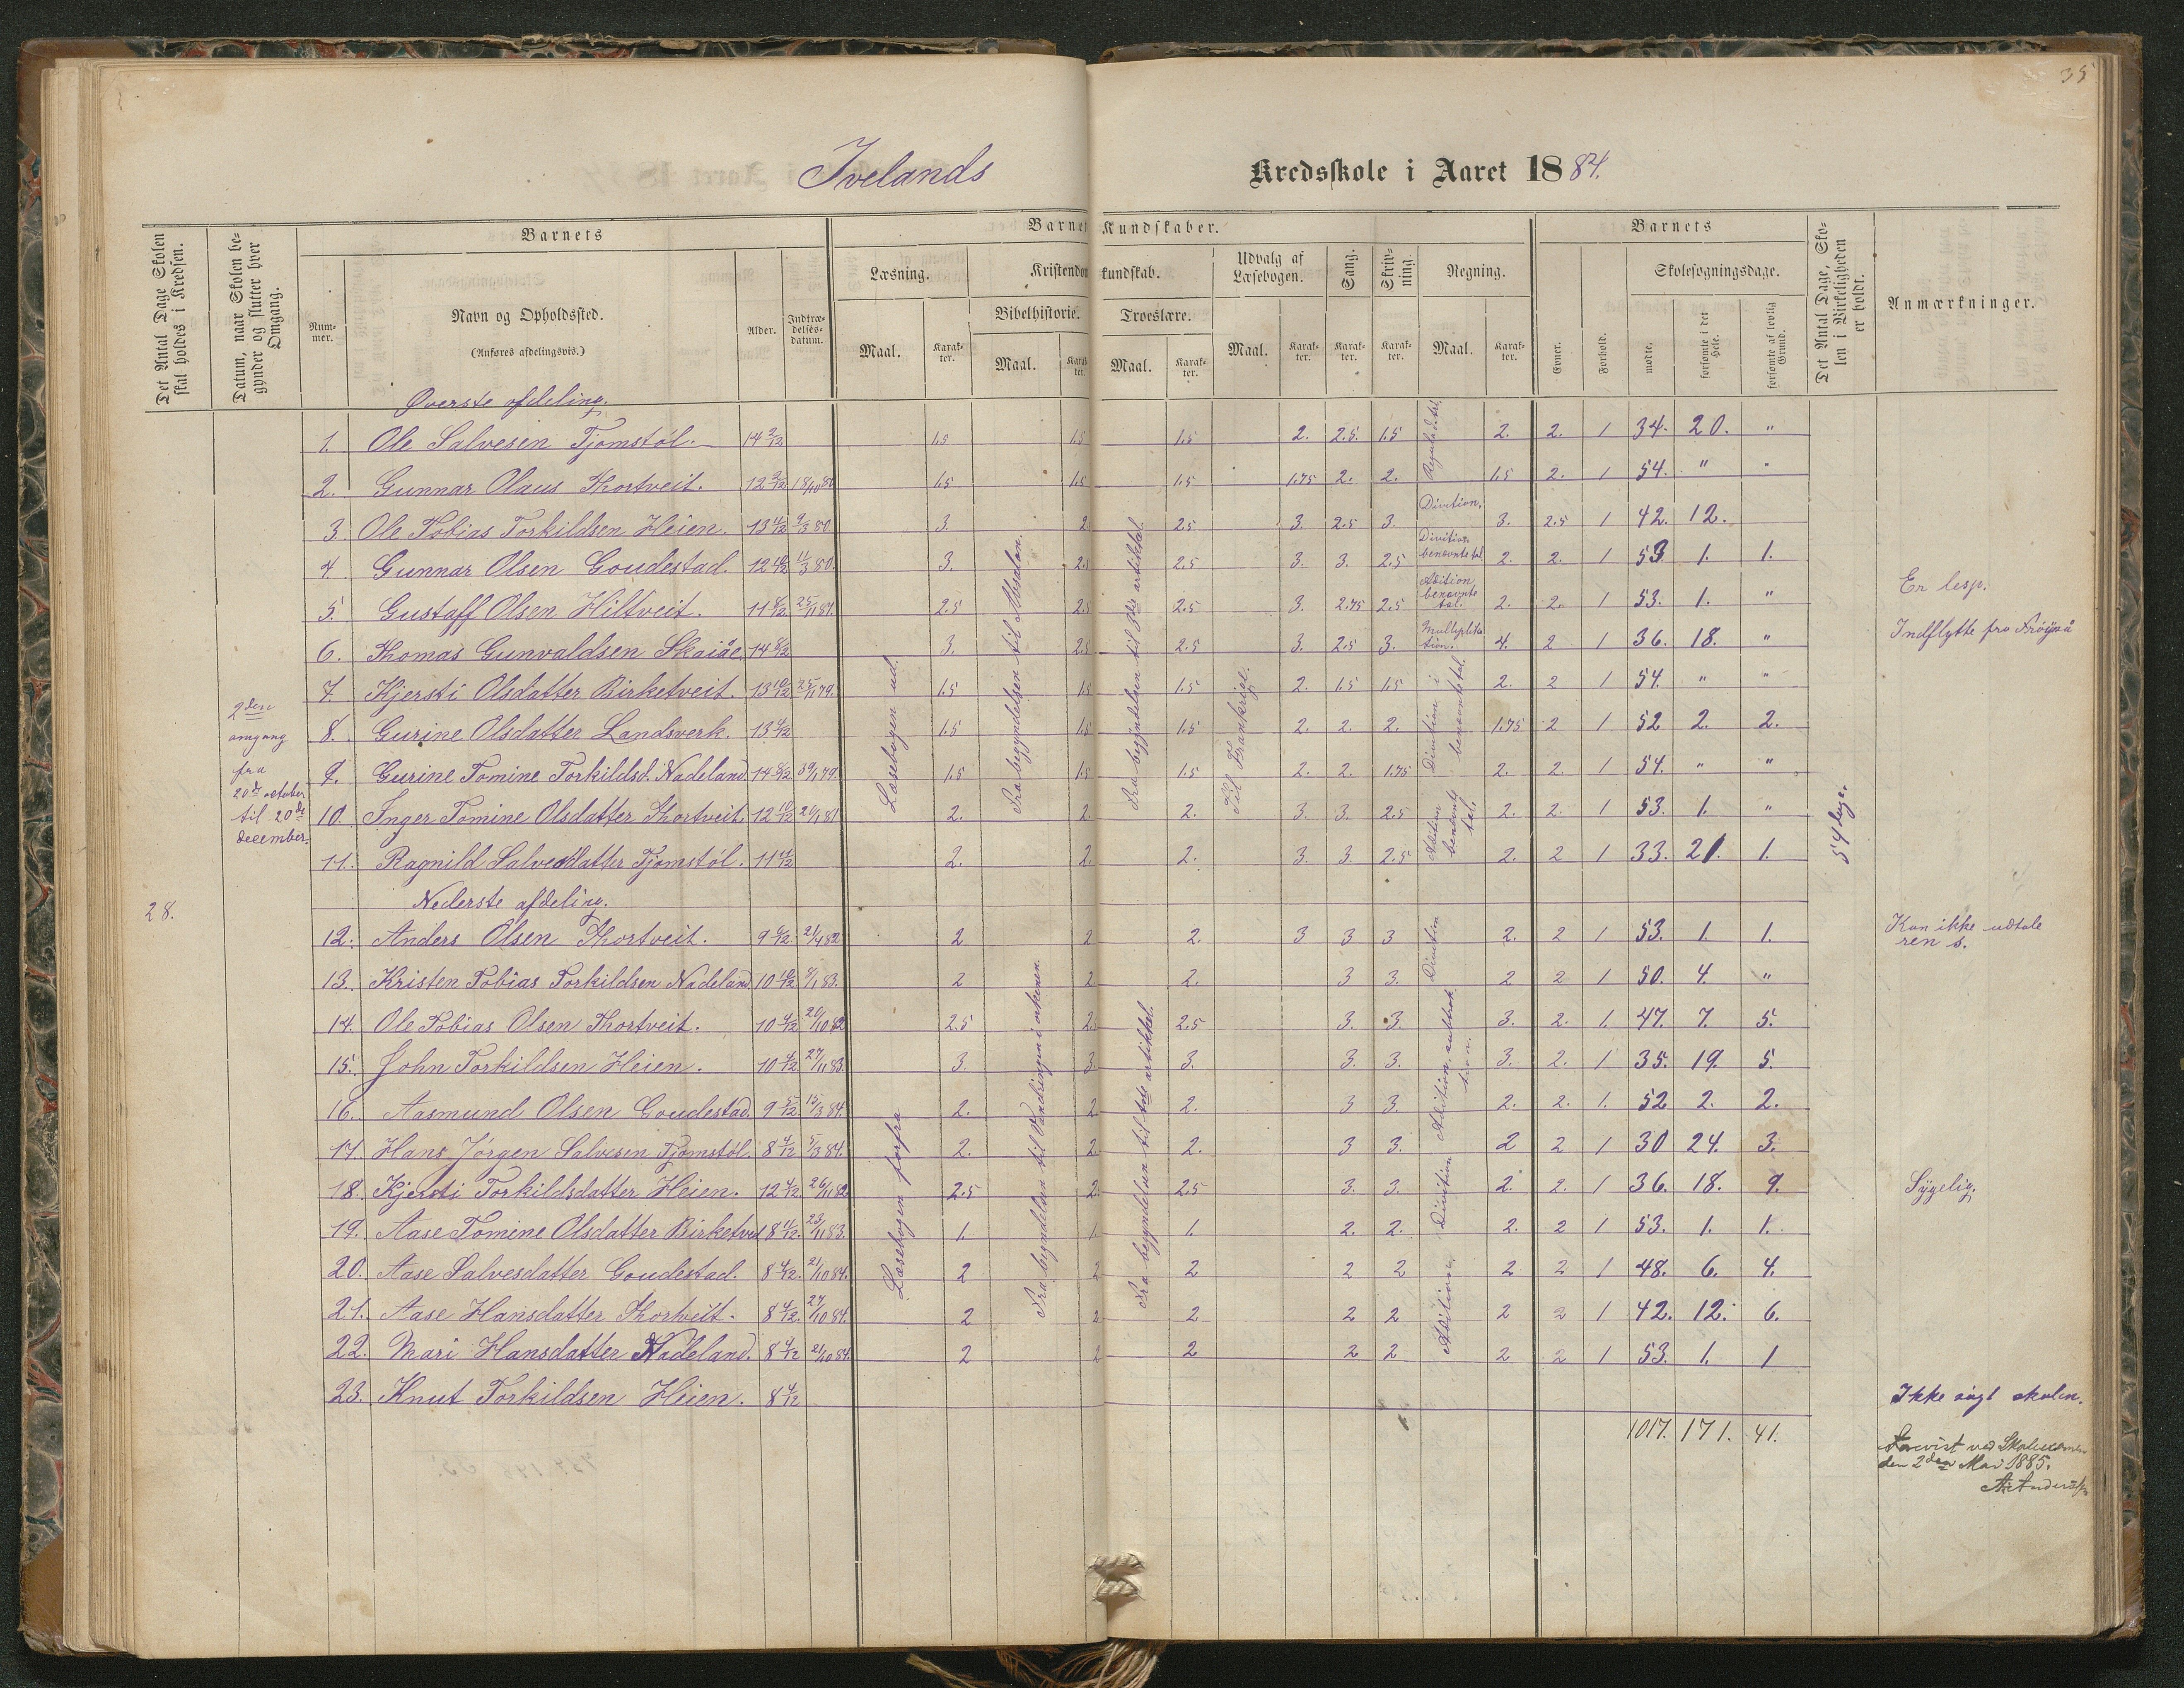 35
Ivelands Kredsskole i Aaret 1884.
Det Antal Dage Skolen skal holdes i Kredsen.
Datum, naar Skolen begynder og slutter hver Omgang.
Barnets
Num-mer.
Navn og Opholdssted.
(Anføres afdelingsvis.)
Alder.
Indtræ-delses-datum.
Barnets Kundskaber.
Læsning.
Kristendomskundskab.
Udvalg af Læsebogen.
Sang.
Skriv-ning.
Regning.
Bibelhistorie.
Troeslære.
Maal. Karak-ter. Maal. Karak-ter. Maal. Karak-ter. Maal. Karak-ter. Karak-ter. Karak-ter. Maal. Karak-ter.
Barnets
Evner.
Forhold.
Skolesøgningsdage.
mødte.
forsømte i det Hele.
forsømte af lovlig Grund.
Det Antal Dage, Skolen i Virkeligheden er holdt.
Anmærkninger.
Øverste afdeling.
1. Ole Salvesen Tjomstøl. 14 2/12 1.5 1.5 1.5 2. 2.5. 1.5 2. 2. 1 34. 20. "
2. Gunnar Olaus Thortveit. 12 2/12 18/10 80 1.5 1.5 1.5 1.75 2. 2. 1.5 2. 1 54. " "
3. Ole Tobias Torkildsen Heien. 13 4/12 9/3 80 3. 2. 2.5 3. 2.5 3. Divition. 3. 2.5 1 42. 12.
4. Gunnar Olsen Goudestad. 12 10/12 11/3 80. 3. 2.5 2.5 3. 3. 2.5 Divition benævnte tal 2. 2. 1 53. 1. 1.
5. Gustaff Olsen Hiltveit. 11 8/12 25/11 81. 2.5 2.5 2.5 3. 2.75 2.5 Adition benævnte tal. 2. 2. 1 53. 1. " En lesp.
6. Thomas Gunvaldsen Skaiåe 14 8/12 3. 2.5 2.5 3. 2.5 3. Multiplikation. 4. 2 1 36. 18. " Indflytte fra
7. Kjersti Olsdatter Birketveit. 13 10/12 25/11 79. 1.5 1.5 1.5 2. 1.5 1.5 2. 2 1 54. " "
8. Gurine Olsdatter Landsverk. 13 4/12 1.5 1.5 1.5 2. 2. 2. 1.75 2 1 52 2. 2.
9. Gurine Tomine Torkildsd. Nadeland. 14 8/12 1.5 1.5 1.5 2. 2. 1.75 2. 2. 1 54. " "
10. Inger Tomine Olsdatter Thortveit. 12 10/12 2. 2. 2. 3. 3. 2.5 2. 2. 1 53. 1. "
11. Ragnild Salvesdatter Tjomstøl. 11 11/12 2. 2. 2. 3. 3. 2.5 2. 2 1 33. 21. 1.
2den omgang fra 20de october til 20de december.
28.
Læsebogen ud.
Fra begyndelsen til Absalon.
Fra begyndelsen til 3die artikkel.
Til Frankrige.
Divition i benævnte tal.
Adition benævnte tal.
54 dage.
Nederste afdeling.
12. Anders Olsen Thortveit. 9 6/12 21/4 82 2 2 2. 3 3 3 2. 2 1 53. 1. 1. Kan ikke udtale ren s.
13. Kristen Tobias Torkildsen Nadeland 10 10/12 83. 2 2. 2. 3 3. 2 2 1 50. 4. "
14. Ole Tobias Olsen Thortveit. 10 4/12 20/10 82 2.5 2.5 2.5 3. 3. 3. 2. 1. 47. 7. 5.
15. John Torkildsen Heien. 10 4/12 27/11 83. 3. 3. 3. 3. 3. 3. 2. 1 35. 19. 5.
16. Aasmund Olsen Goudestad. 9 5/12 15/3 84. 2. 2. 2. 3 3. 2. 2. 1. 52 2. 2.
17. Hans Jørgen Salvesen Tjomstøl. 8 4/12 5/3 84. 2. 2. 2. 3 3. 2 2 1 30 24. 3.
18. Kjersti Torkildsdatter Heien. 12 4/12. 26/11 82 2.5 2. 2.5 3. 3. 2. 2. 1 36. 18. 9. Sÿgelig.
19. Aase Tomine Olsdatter Birketveit 8 11/12. 23/11 83. 1. 1. 1. 2. 2. 2. 2 1 53. 1. 1.
20. Aase Salvesdatter Goudestad. 8 4/12. 21/10 84. 2 2 2 2 2 2 2 1 48. 6. 4.
21. Aase Hansdatter Thortveit. 8 4/12. 27/10 84. 2 2 2 2 2 2 2 1 42. 12. 6.
22. Mari Hansdatter Nadeland. 8 4/12 21/10 84. 2 2 2 2 2 2 2 1 53. 1. 1
23. Knut Torkildsen Heien. 8 4/12 Ikke søgt skolen.
Læsebogen forfra
Fra begyndelsen til Vandringen i ørkenen.
Fra begyndelsen til 1ste artikkel.
Divition
Adition. subtraktion.
Divition
Adition.
1017. 171. 41.
ved
den 2den Mai 1885.